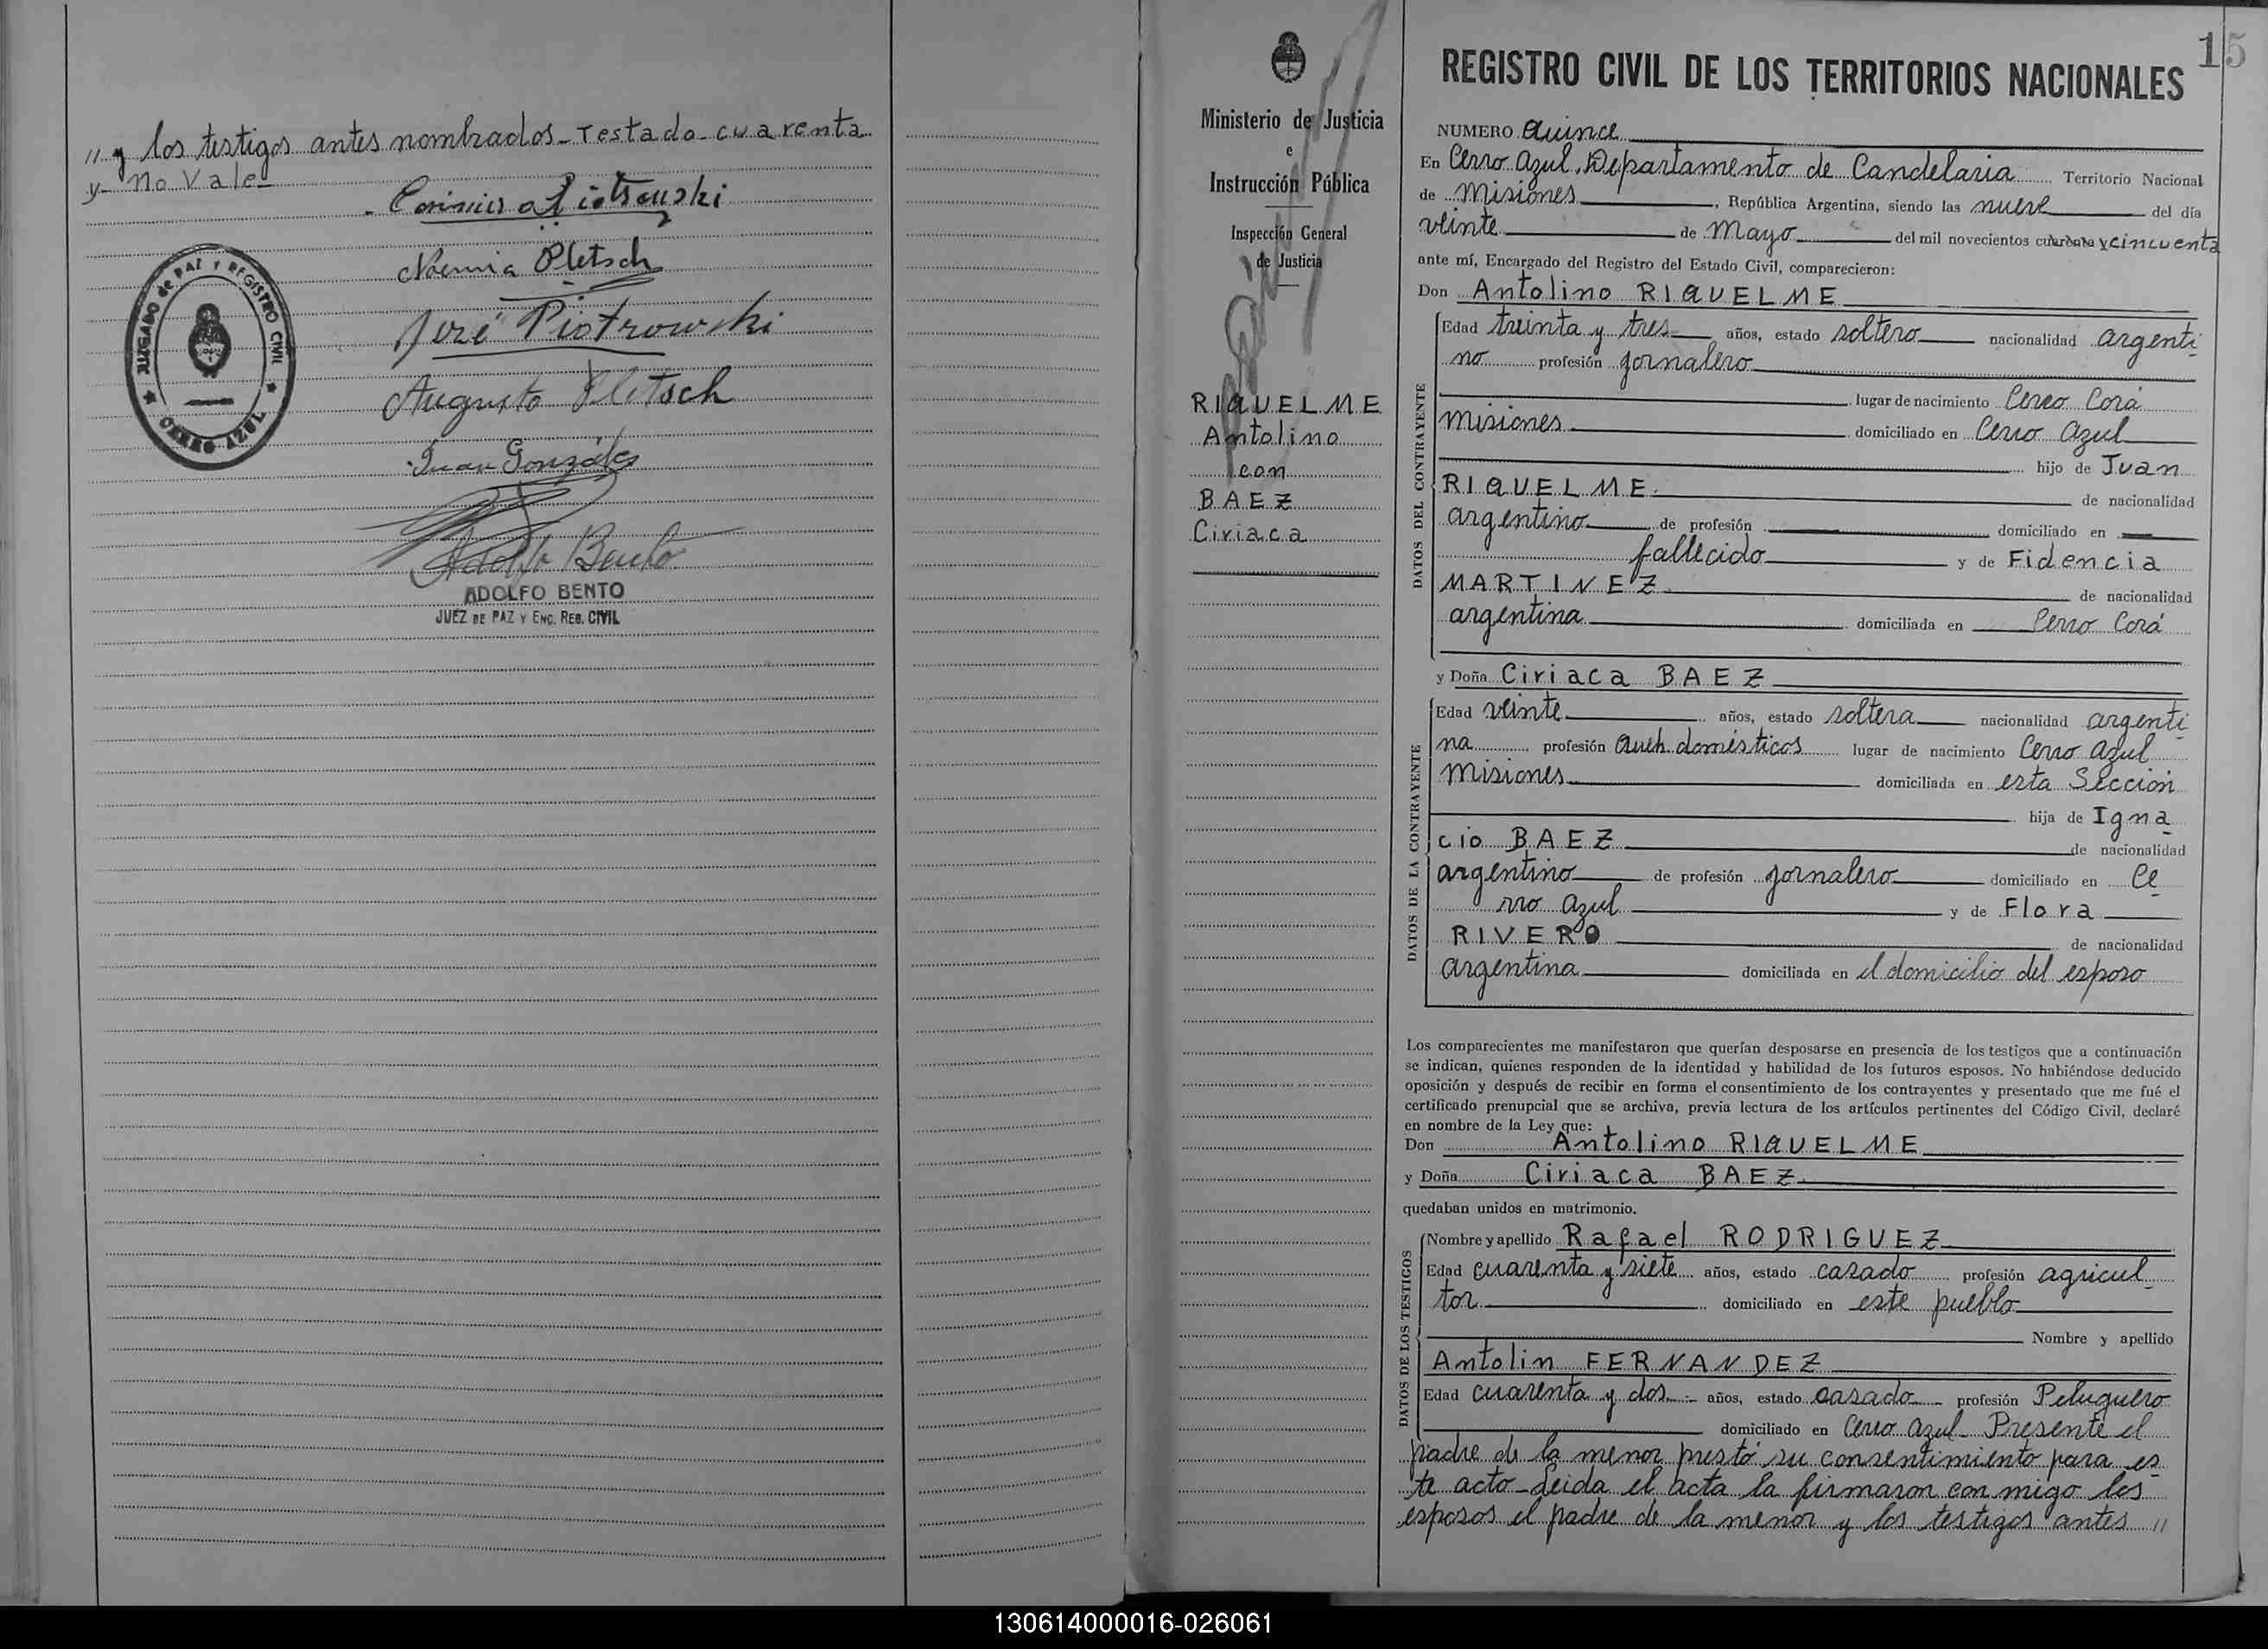 " y los testigos antes nombrados - Testado - cuarenta
y - no vale -
Noemia Pletsch
José Piotrowski
Augusto Pletsch
Juan Gonzáles
Adolfo Bento
ADOLFO BENTO
JUEZ DE PAZ Y ENC. REG. CIVIL
JUZGADO de PAZ Y REGISTRO CIVIL
★ CERRO AZUL ★
15
Ministerio de Justicia
e
Instrucción Pública
Inspección General
de Justicia
RIQUELME
Antolino
con
BAEZ
Ciriaca
REGISTRO CIVIL DE LOS TERRITORIOS NACIONALES
NUMERO Quince
En Cerro Azul, Departamento de Candelaria Territorio Nacional
de Misiones, República Argentina, siendo las nueve del día
veinte de Mayo del mil novecientos cuarenta y cincuenta
ante mí, Encargado del Registro del Estado Civil, comparecieron:
Don Antolino RIQUELME
DATOS DEL CONTRAYENTE
Edad treinta y tres años, estado soltero nacionalidad argenti-
no profesión jornalero
lugar de nacimiento Cerro Corá
Misiones domiciliado en Cerro Azul
hijo de Juan
RIQUELME. de nacionalidad
argentino de profesión domiciliado en
fallecido y de Fidencia
MARTINEZ de nacionalidad
argentina domiciliada en Cerro Corá
y Doña Ciriaca BAEZ
DATOS DE LA CONTRAYENTE
Edad veinte años, estado soltera nacionalidad argenti-
na profesión Queh. domésticos lugar de nacimiento Cerro Azul
Misiones domiciliada en esta Sección
hija de Igna-
cio BAEZ de nacionalidad
argentino de profesión jornalero domiciliado en Ce-
rro Azul y de Flora
RIVERO de nacionalidad
argentina domiciliada en el domicilio del esposo
Los comparecientes me manifestaron que querían desposarse en presencia de los testigos que a continuación
se indican, quienes responden de la identidad y habilidad de los futuros esposos. No habiéndose deducido
oposición y después de recibir en forma el consentimiento de los contrayentes y presentado que me fué el
certificado prenupcial que se archiva, previa lectura de los artículos pertinentes del Código Civil, declaré
en nombre de la Ley que:
Don Antolino RIQUELME
y Doña Ciriaca BAEZ
quedaban unidos en matrimonio.
DATOS DE LOS TESTIGOS
Nombre y apellido Rafael RODRIGUEZ
Edad cuarenta y siete años, estado casado profesión agricul-
tor domiciliado en este pueblo
Nombre y apellido
Antolin FERNANDEZ
Edad cuarenta y dos años, estado casado profesión Peluquero
domiciliado en Cerro Azul - Presente el
padre de la menor prestó su consentimiento para es-
te acto - Leida el acta la firmaron con migo los
esposos el padre de la menor y los testigos antes "
130614000016-026061